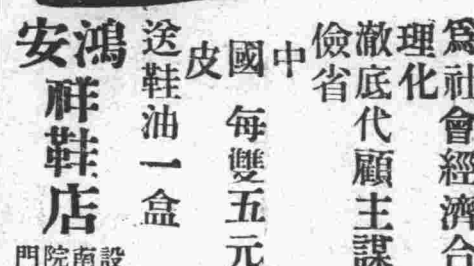 為社會經濟合
理化
澈底代顧主謀
儉省
中國皮
每雙五元
送鞋油一盒
鴻安祥鞋店
設南院門